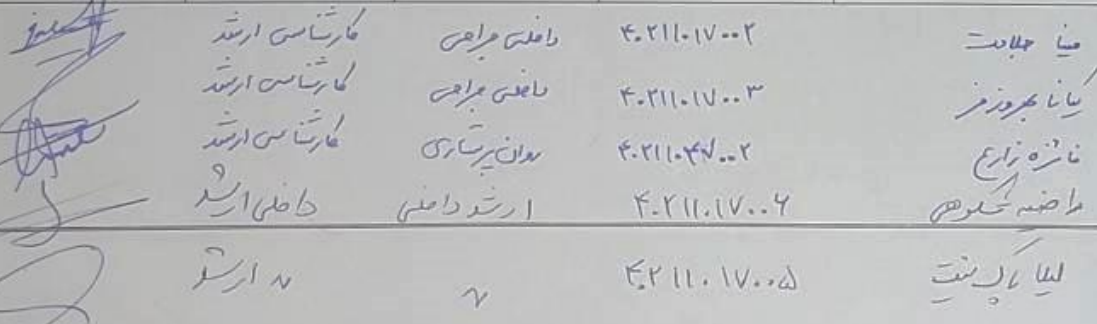 مینا جلادت ۴۰۲۱۱۰۱۷۰۰۲ داخلی جراحی کارشناسی ارشد
کیانا بهروزفر ۴۰۲۱۱۰۱۷۰۰۳ داخلی جراحی کارشناسی ارشد
فائزه زارع ۴۰۲۱۱۰۴۷۰۰۲ روان پرستاری کارشناسی ارشد
راضیه شکوهی ۴۰۲۱۱۰۱۷۰۰۶ ارشد داخلی داخلی ارشد
لیلا پاک نیت ۴۰۲۱۱۰۱۷۰۰۵ ″ ″ ارشد